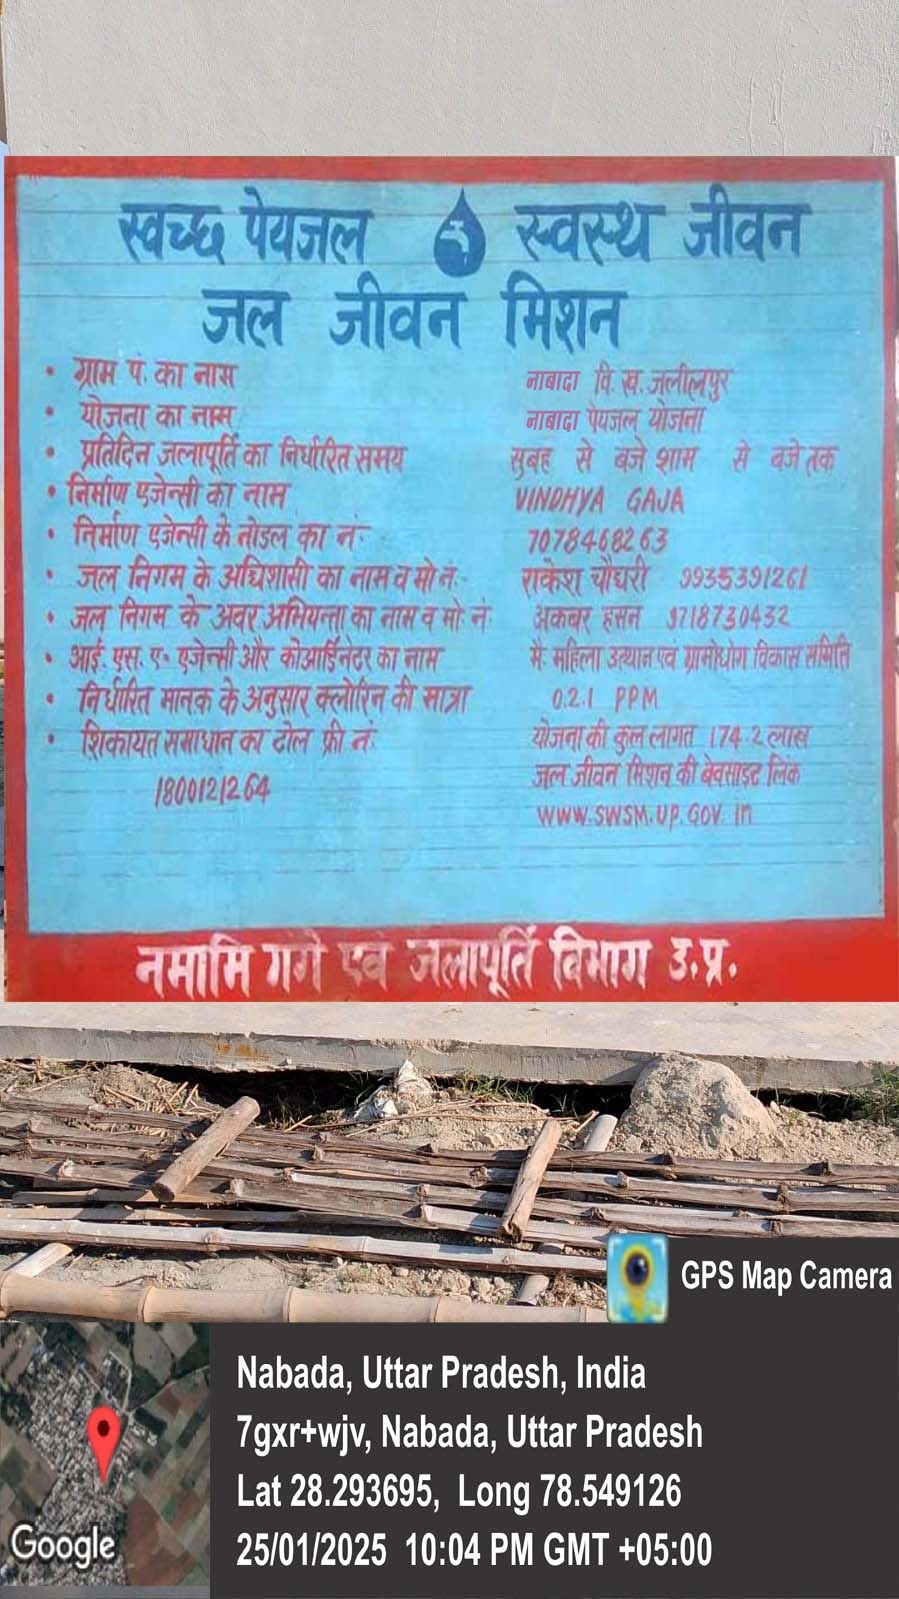 स्वच्छ पेयजल स्वस्थ जीवन
जल जीवन मिशन
• ग्राम पं. का नाम नाबादा वि. ख. जलीलपुर
• योजना का नाम नाबादा पेयजल योजना
• प्रतिदिन जलापूर्ति का निर्धारित समय सुबह से बजे शाम से बजे तक
• निर्माण एजेन्सी का नाम VINDHYA GAJA
• निर्माण एजेन्सी के नोडल का नं:- 7078468263
• जल निगम के अधिशासी का नाम व मो नं:- राकेश चौधरी 9935391261
• जल निगम के अवर अभियन्ता का नाम व मो नं: अकबर हसन 9718730432
• आई. एस. ए. एजेन्सी और कोआर्डिनेटर का नाम मै. महिला उत्थान एवं ग्रामोधोग विकास समिति
• निर्धारित मानक के अनुसार क्लोरिन की मात्रा 0.2.1 PPM
• शिकायत समाधान का टोल फ्री नं: योजना की कुल लागत 174.2 लाख
1800121264 जल जीवन मिशन की वेवसाइट लिंक
www.swsm.up.gov.in
नमामि गंगे एवं जलापूर्ति विभाग उ.प्र.
GPS Map Camera
Nabada, Uttar Pradesh, India
7gxr+wjv, Nabada, Uttar Pradesh
Lat 28.293695, Long 78.549126
25/01/2025 10:04 PM GMT +05:00
Google